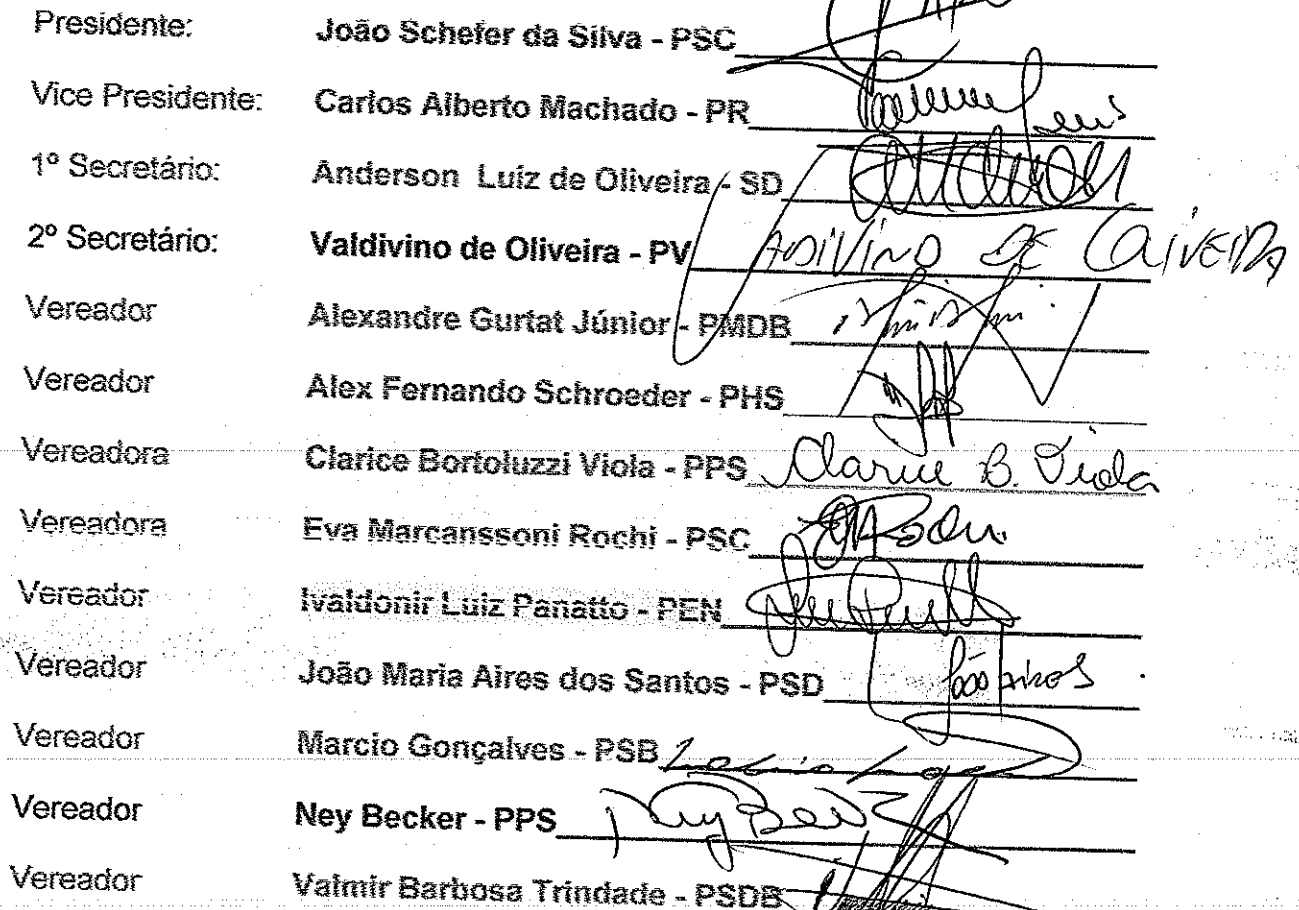 Presidente: João Schefer da Silva - PSC
Vice Presidente: Carlos Alberto Machado - PR
1º Secretário: Anderson Luiz de Oliveira - SD
2º Secretário: Valdivino de Oliveira - PV VADIVINO DE OLIVEIRA
Vereador Alexandre Gurtat Júnior - PMDB
Vereador Alex Fernando Schroeder - PHS
Vereadora Clarice Bortoluzzi Viola - PPS Clarice B. Viola
Vereadora Eva Marcanssoni Rochi - PSC
Vereador Ivaldonir Luiz Panatto - PEN
Vereador João Maria Aires dos Santos - PSD
Vereador Marcio Gonçalves - PSB
Vereador Ney Becker - PPS
Vereador Valmir Barbosa Trindade - PSDB